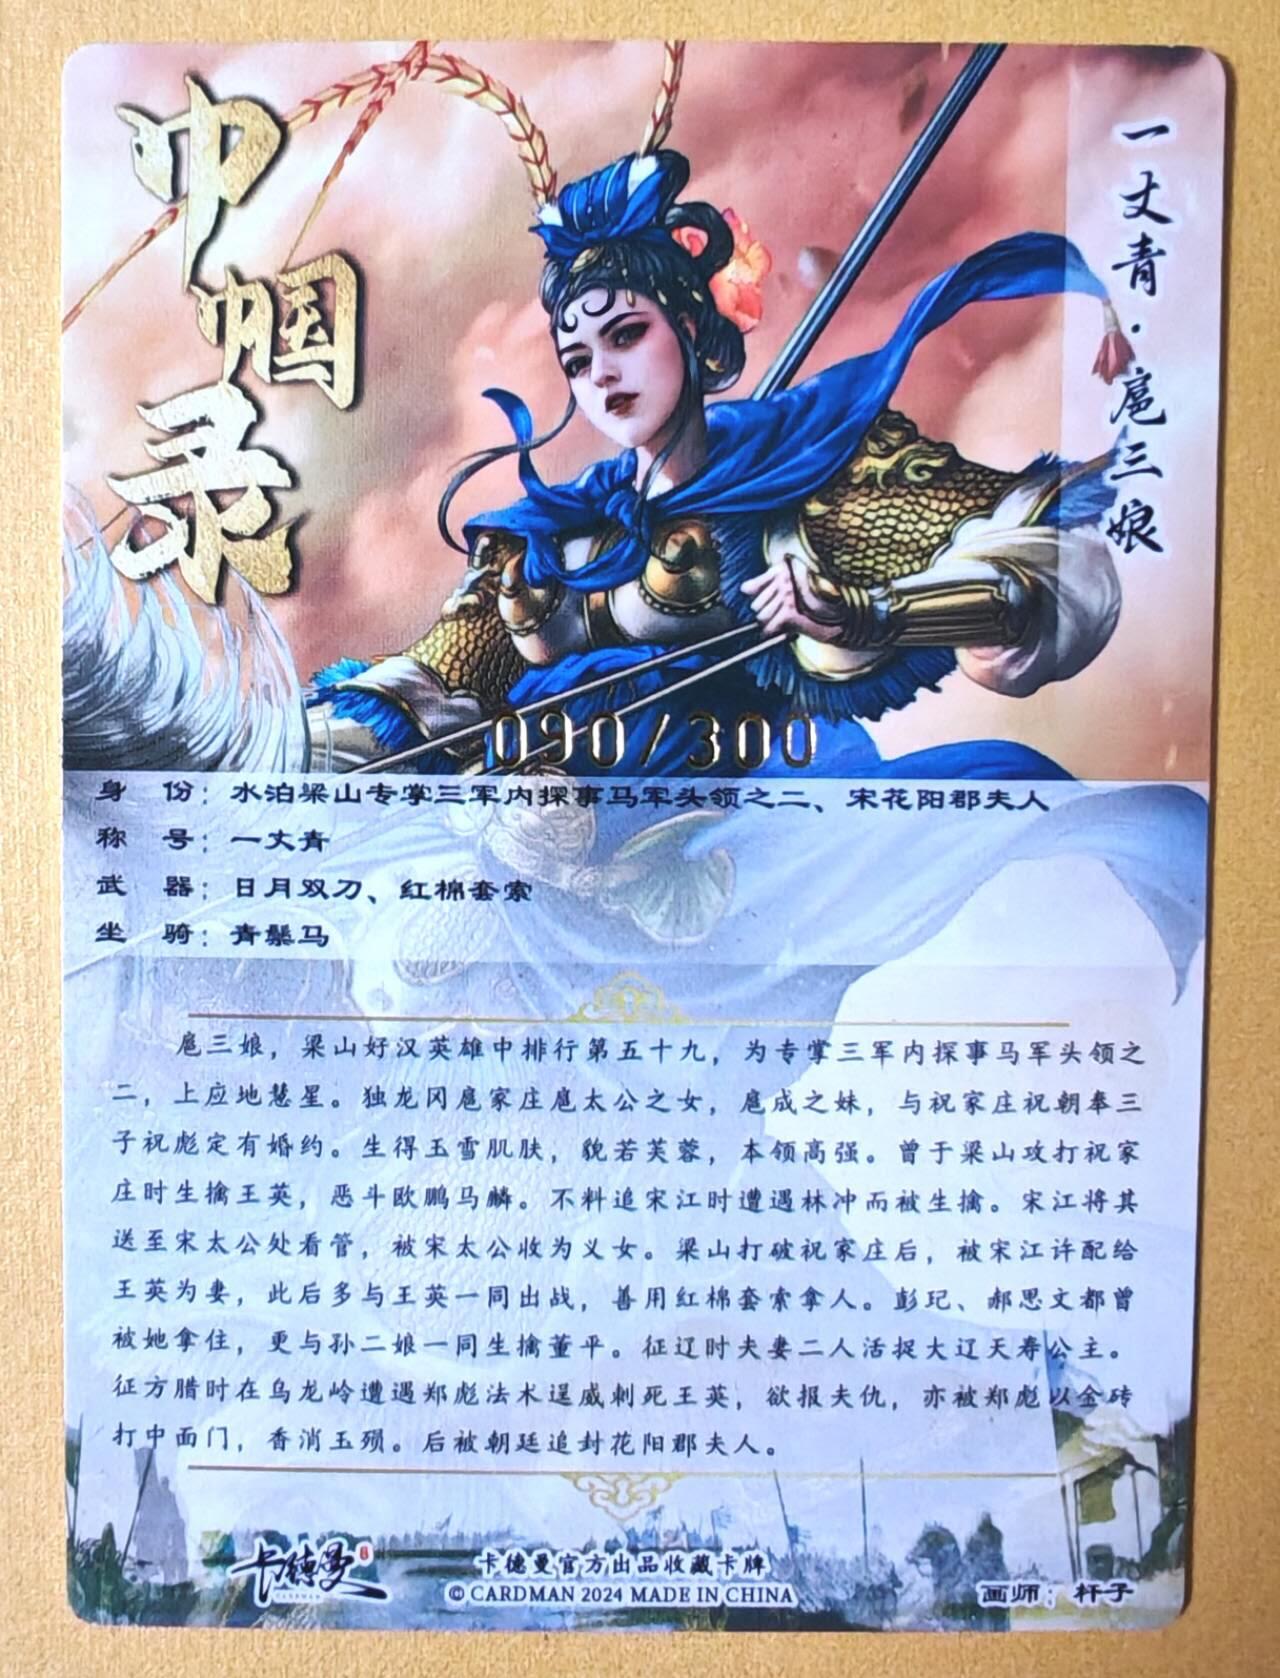 巾帼录
一丈青·扈三娘
090/300
身　份：水泊梁山专掌三军内探事马军头领之二、宋花阳郡夫人
称　号：一丈青
武　器：日月双刀、红棉套索
坐　骑：青鬃马
扈三娘，梁山好汉英雄中排行第五十九，为专掌三军内探事马军头领之
二，上应地慧星。独龙冈扈家庄扈太公之女，扈成之妹，与祝家庄祝朝奉三
子祝彪定有婚约。生得玉雪肌肤，貌若芙蓉，本领高强。曾于梁山攻打祝家
庄时生擒王英，恶斗欧鹏马麟。不料追宋江时遭遇林冲而被生擒。宋江将其
送至宋太公处看管，被宋太公收为义女。梁山打破祝家庄后，被宋江许配给
王英为妻，此后多与王英一同出战，善用红棉套索拿人。彭玘、郝思文都曾
被她拿住，更与孙二娘一同生擒董平。征辽时夫妻二人活捉大辽天寿公主。
征方腊时在乌龙岭遭遇郑彪法术逞威刺死王英，欲报夫仇，亦被郑彪以金砖
打中面门，香消玉殒。后被朝廷追封花阳郡夫人。
卡德曼
CARDMAN
卡德曼官方出品收藏卡牌
© CARDMAN 2024 MADE IN CHINA
画师：杆子